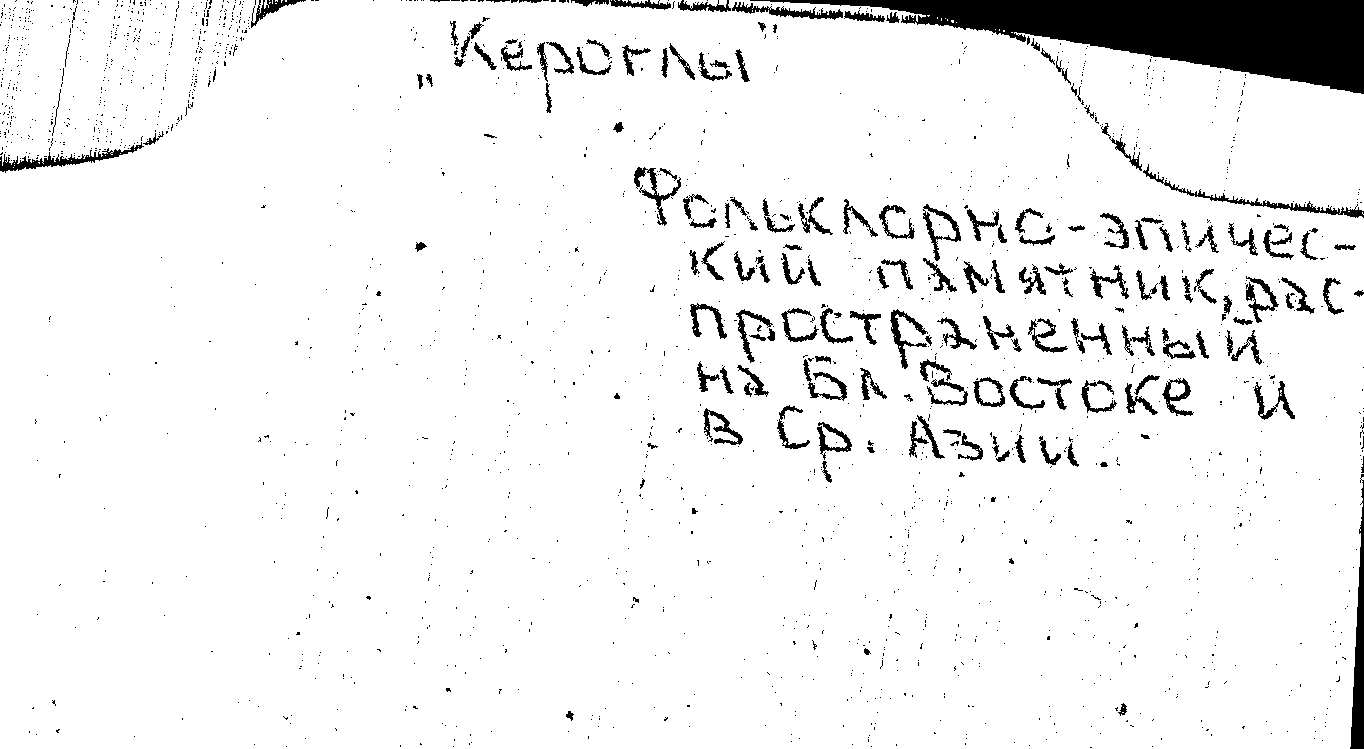 „Кероглы"
Фольклорно-эпичес-
кий памятник, рас-
пространенный
на Бл. Востоке и
в Ср. Азии.